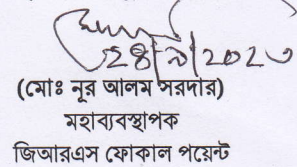 ২৪|৯|২০২৩
(মোঃ নূর আলম সরদার)
মহাব্যবস্থাপক
জিআরএস ফোকাল পয়েন্ট